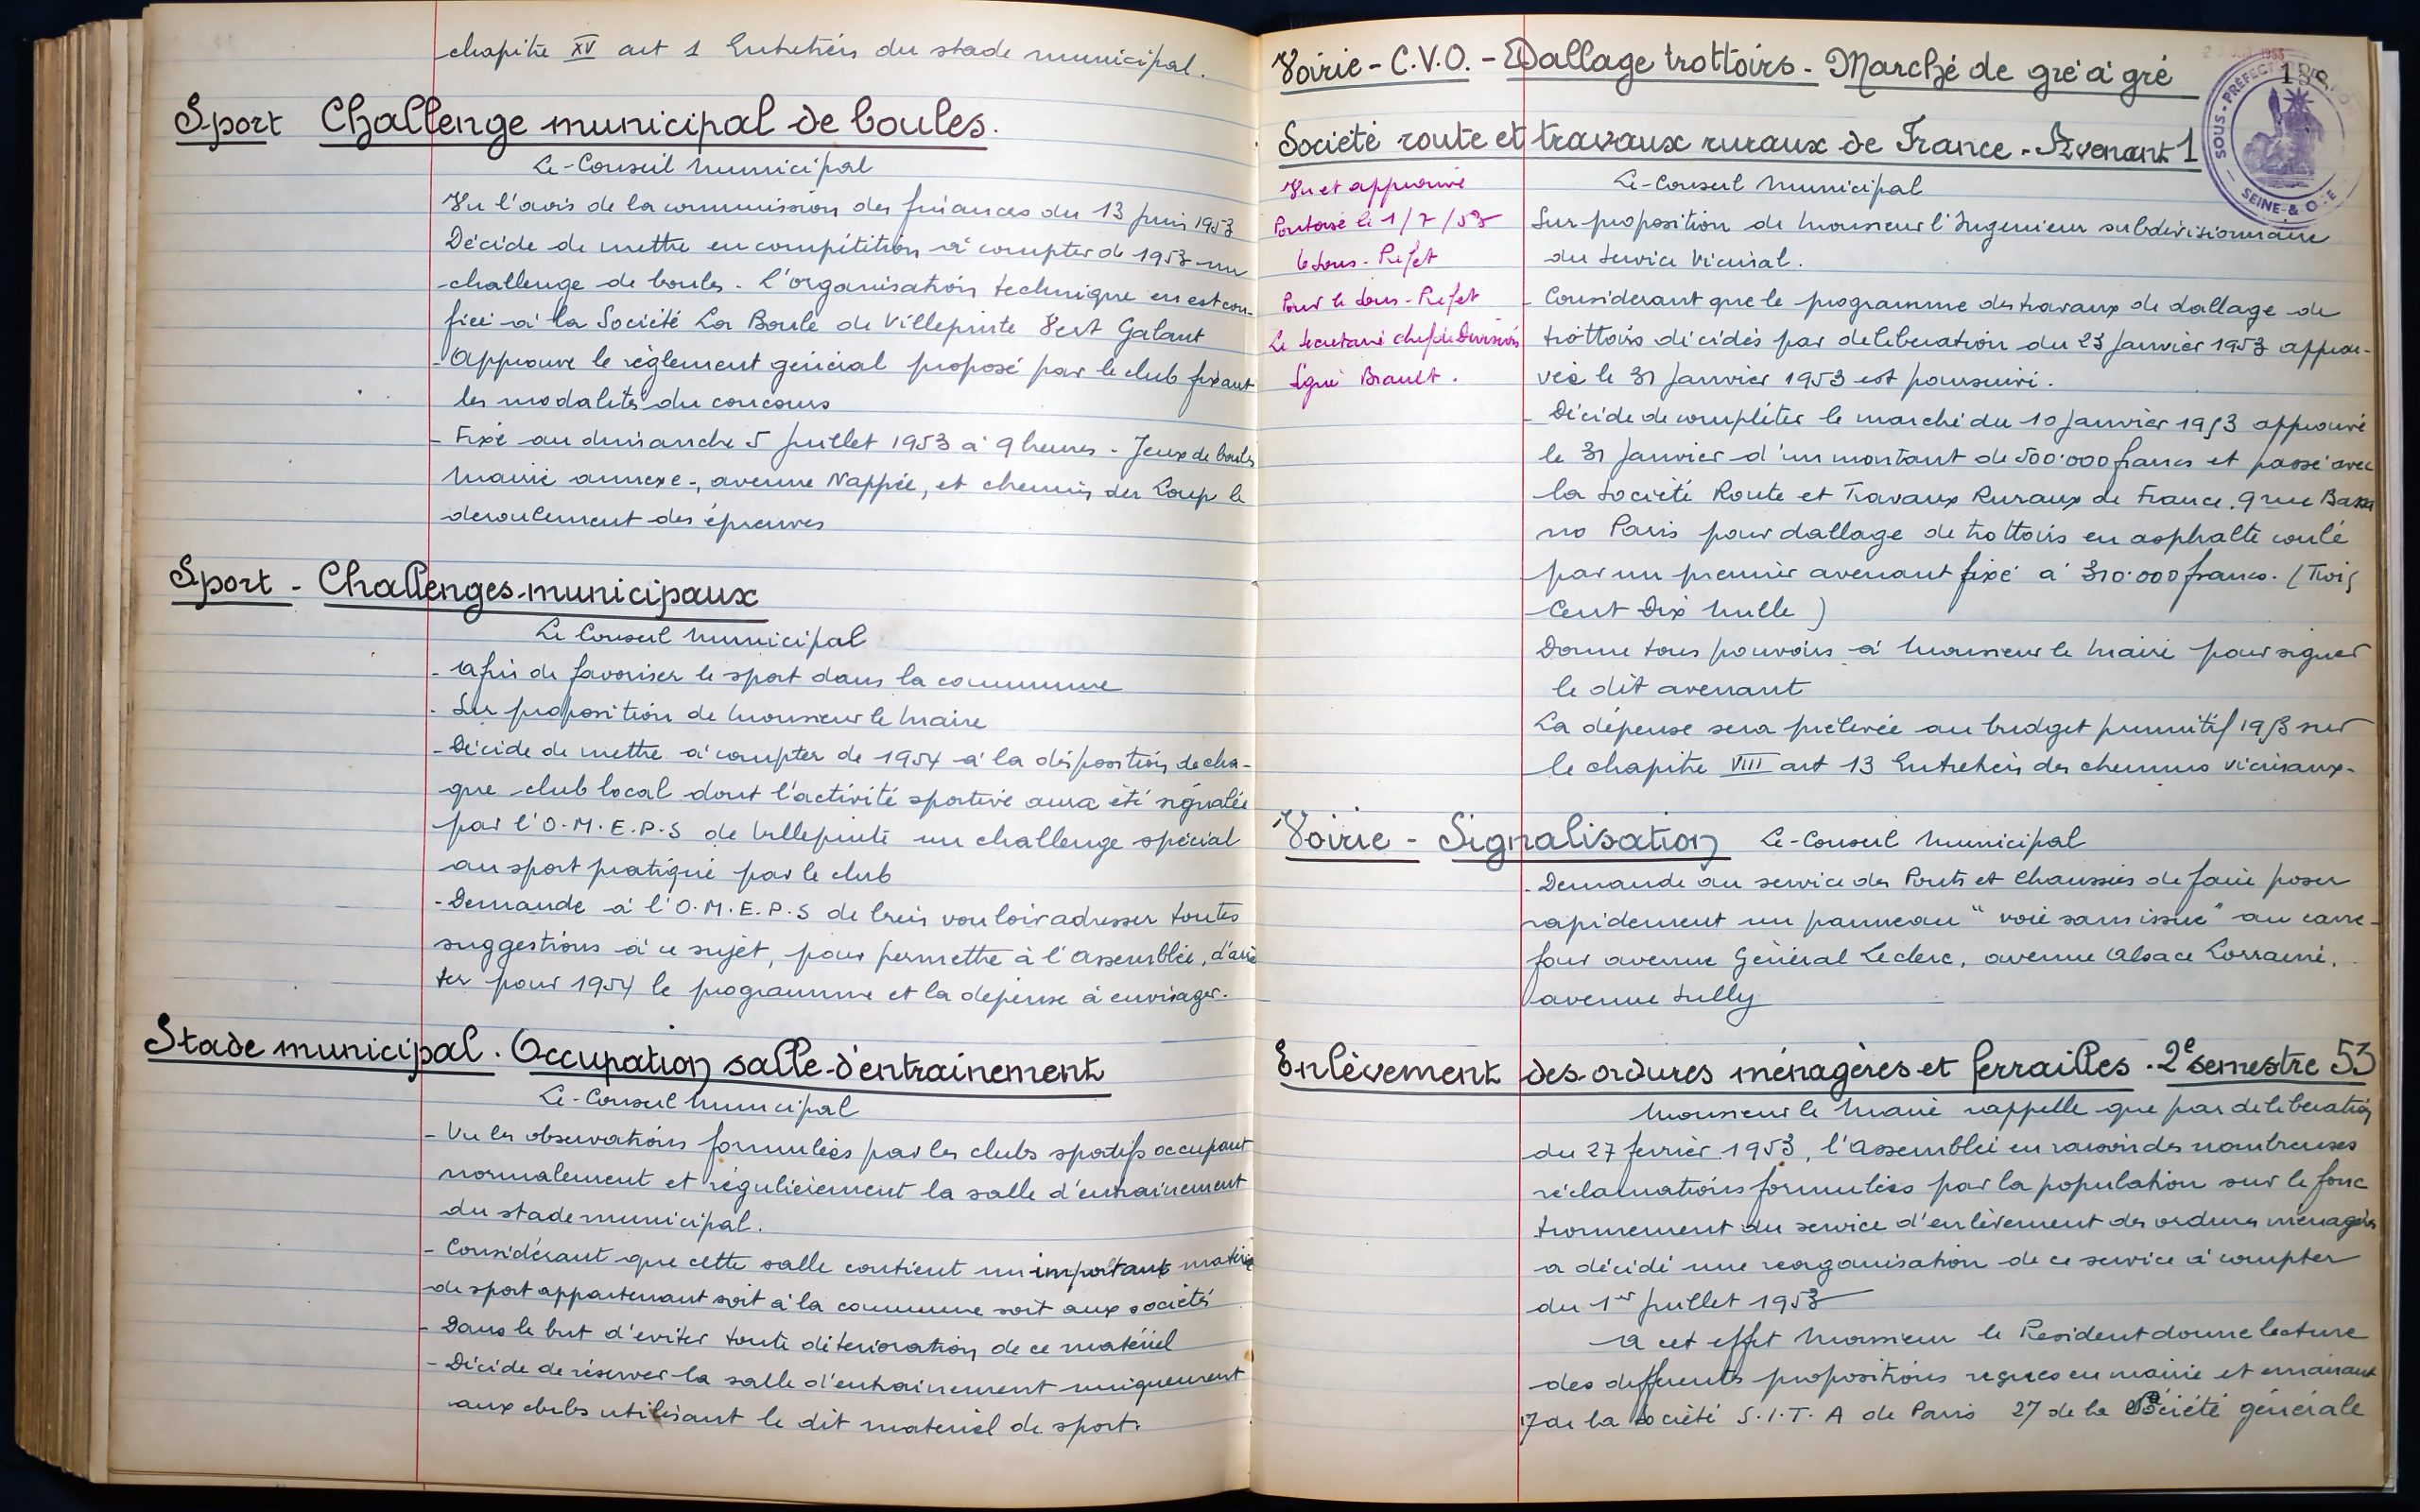 chapitre XV art 1 Entretien du stade municipal.
Sport Challenge municipal de boules.
Le Conseil Municipal
Vu l'avis de la commission des finances du 13 Juin 1953
Décide de mettre en compétition à compter de 1953 un
challenge de boules. L'organisation technique en est con-
fiée à la Société La Boule de Villepinte Vert Galant
- Approuve le règlement général proposé par le club fixant
les modalités du concours
- Fixe au dimanche 5 Juillet 1953 à 9 heures - Jeux de boules
Mairie annexe -, avenue Nappée, et chemin du Loup le
deroulement des épreuves
Sport - Challenges municipaux
Le Conseil Municipal
- Afin de favoriser le sport dans la commune
- Sur proposition de Monsieur le Maire
- Décide de mettre à compter de 1954 à la disposition de cha-
que club local dont l'activité sportive aura été signalée
par l'O.M.E.P.S de Villepinte un challenge spécial
au sport pratiqué par le club
- Demande à l'O.M.E.P.S de bien vouloir adresser toutes
suggestions à ce sujet, pour permettre à l'Assemblée, d'arrê
ter pour 1954 le programme et la dépense à envisager.
Stade municipal. Occupation salle d'entrainement
Le Conseil Municipal
- Vu les observations formulées par les clubs sportifs occupant
normalement et régulièrement la salle d'entrainement
du stade municipal.
- Considérant que cette salle contient un important matérie
de sport appartenant soit à la commune soit aux sociétés
- Dans le but d'éviter toute détérioration de ce matériel
- Décide de réserver la salle d'entrainement uniquement
aux clubs utilisant le dit matériel de sport.
Voirie - C.V.O. - Dallage trottoirs - Marché de gré à gré
Société route et travaux ruraux de France - Avenant 1
SOUS-PRÉFECT
SEINE & O E
Vu et approuvé
Pontoise le 1/7/53
le Sous-Préfet
Pour le Sous-Préfet
Le Secrétaire chef de Division
Signé Brault.
Le Conseil Municipal
Sur proposition de Monsieur l'Ingenieur subdivisionnaire
du Service Vicinal.
- Considerant que le programme des travaux de dallage de
trottoirs décidés par deliberation du 23 Janvier 1953 approu-
vée le 31 Janvier 1953 est poursuivi.
- Décide de compléter le marché du 10 Janvier 1953 approuvé
le 31 Janvier d'un montant de 500.000 francs et passé avec
la Société Route et Travaux Ruraux de France. 9 rue Bassa
no Paris pour dallage de trottoirs en asphalte coulé
par un premier avenant fixé à 310.000 francs. (Trois
Cent Dix Mille)
Donne tous pouvoirs à Monsieur le Maire pour signer
le dit avenant
La dépense sera prélevée au budget primitif 1953 sur
le chapitre VIII art 13 Entretien des chemins vicinaux.
Voirie - Signalisation Le Conseil Municipal
- Demande au service des Ponts et Chaussées de faire poser
rapidement un panneau "voie sans issue" au carre-
four avenue Général Leclerc, avenue Alsace Lorraine,
avenue Sully
Enlèvement des ordures ménagères et ferrailles. 2e semestre 53
Monsieur le Maire rappelle que par deliberation
du 27 fevrier 1953, l'Assemblée en raison des nombreuses
réclamations formulées par la population sur le fonc
tionnement du service d'enlèvement des ordures ménagères
a décidé une reorganisation de ce service à compter
du 1er Juillet 1953
A cet effet Monsieur le President donne lecture
des differents propositions reçues en mairie et emanant
1/ de la Société S.I.T.A de Paris 2/ de la Société générale